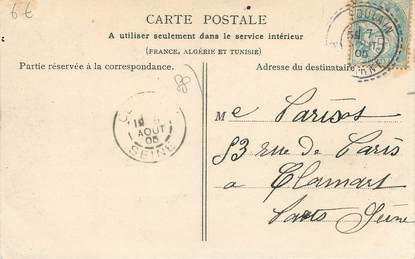 6€
CARTE POSTALE
A utiliser seulement dans le service intérieur
(FRANCE, ALGÉRIE ET TUNISIE)
Partie réservée à la correspondance.
Adresse du destinataire
88
AOUT
05
SEINE
Me Parisot
83 rue de Paris
a Clamart
Seine